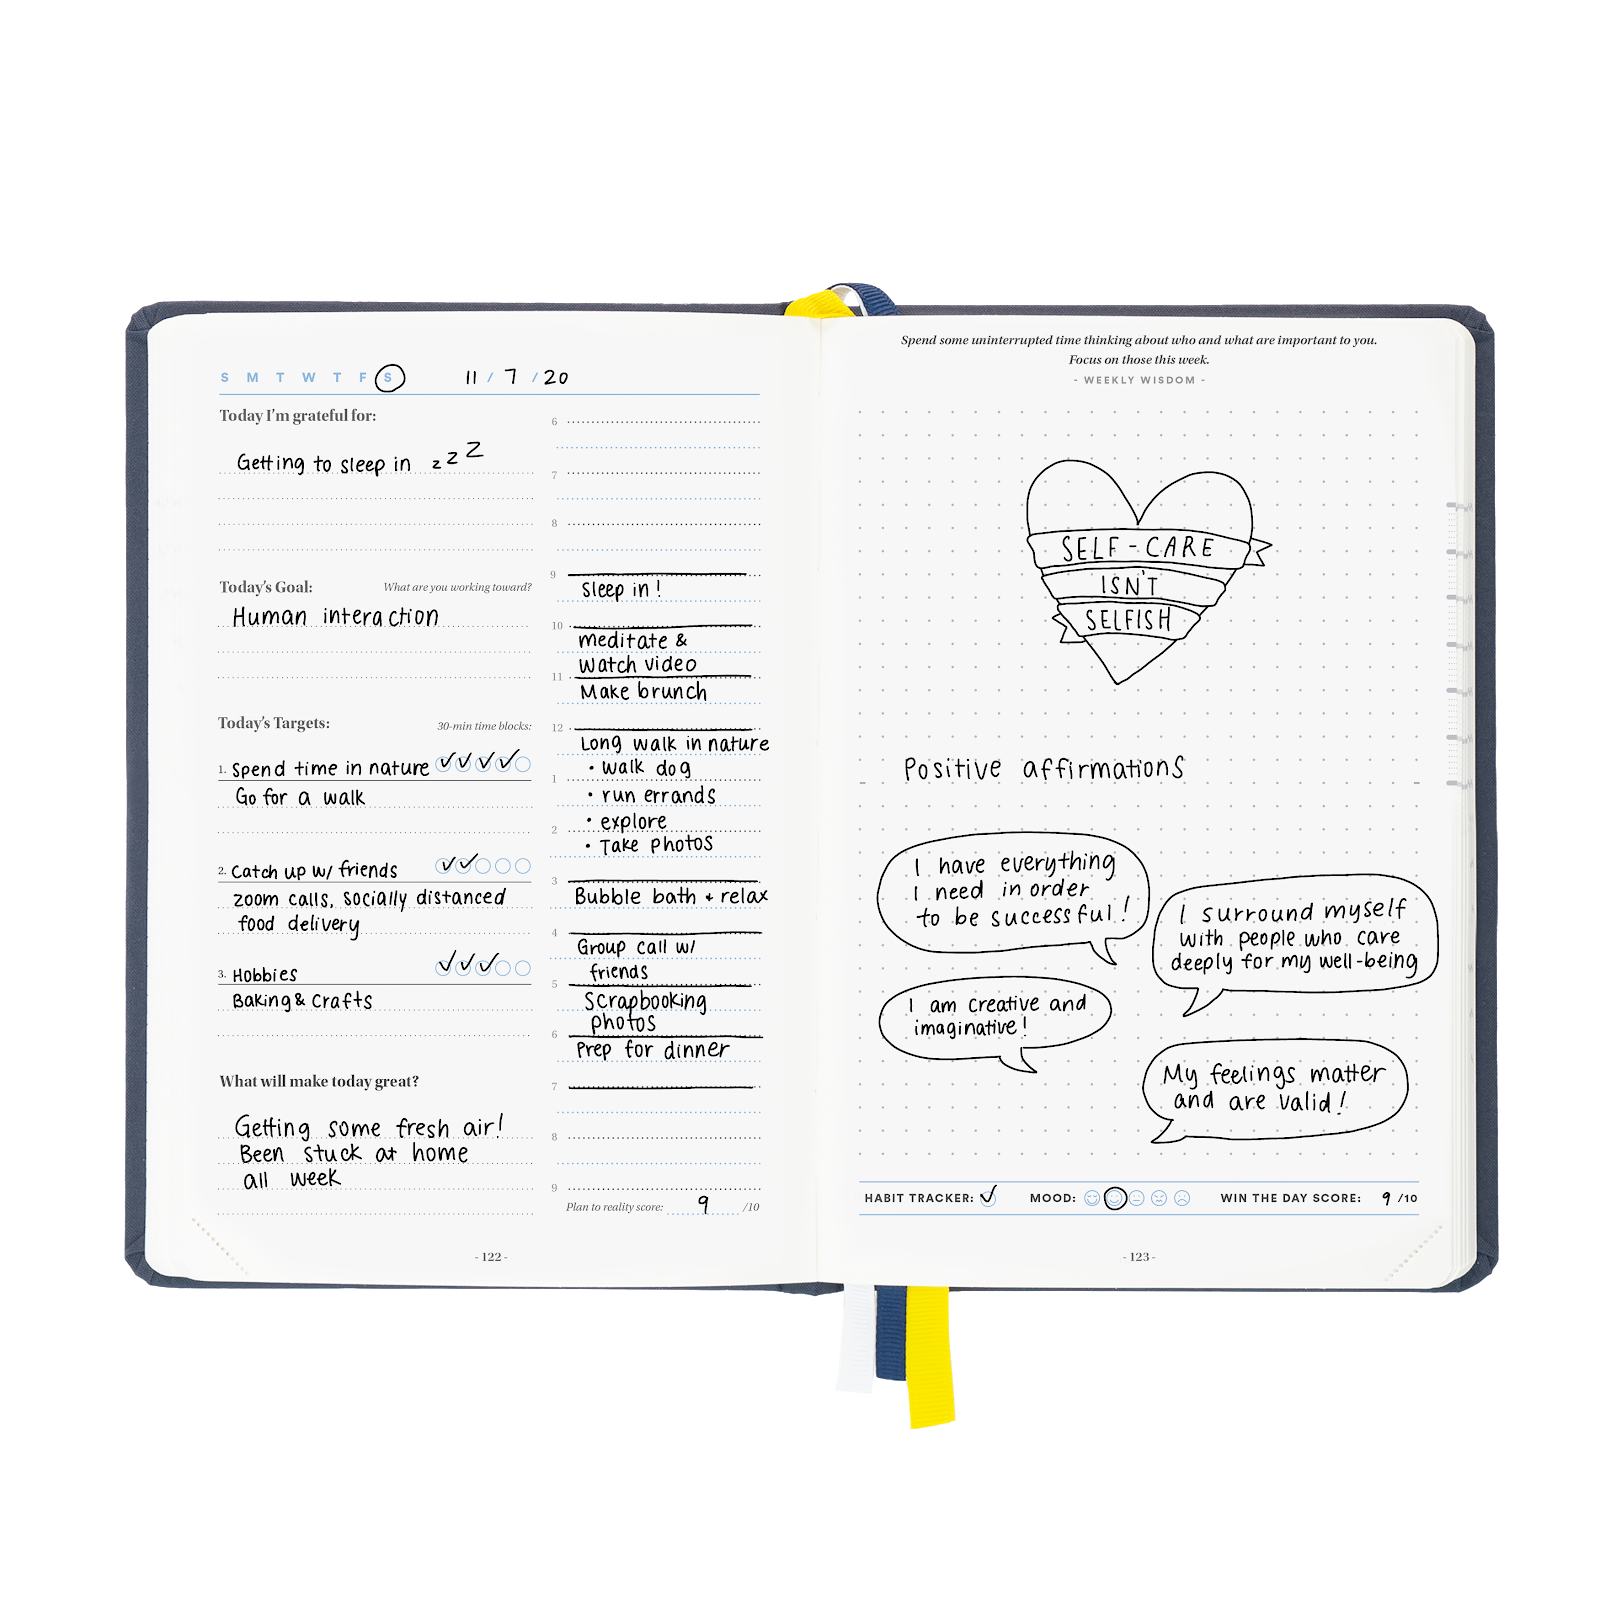 S M T W T F S 11 / 7 / 20
Today I'm grateful for:
Getting to sleep in z z Z
Today's Goal: What are you working toward?
Human interaction
Today's Targets: 30-min time blocks:
1. Spend time in nature
Go for a walk
2. Catch up w/ friends
zoom calls, socially distanced
food delivery
3. Hobbies
Baking & Crafts
What will make today great?
Getting some fresh air!
Been stuck at home
all week
6
7
8
9
Sleep in!
10
meditate &
watch video
11
Make brunch
12
Long walk in nature
• walk dog
1
• run errands
• explore
2
• Take photos
3
Bubble bath + relax
4
Group call w/
friends
5
Scrapbooking
photos
6
Prep for dinner
7
8
9
Plan to reality score: 9 /10
- 122 -
Spend some uninterrupted time thinking about who and what are important to you.
Focus on those this week.
- WEEKLY WISDOM -
SELF-CARE
ISN'T
SELFISH
Positive affirmations
I have everything
I need in order
to be successful!
I surround myself
with people who care
deeply for my well-being
I am creative and
imaginative!
My feelings matter
and are valid!
HABIT TRACKER: MOOD: WIN THE DAY SCORE: 9 /10
- 123 -